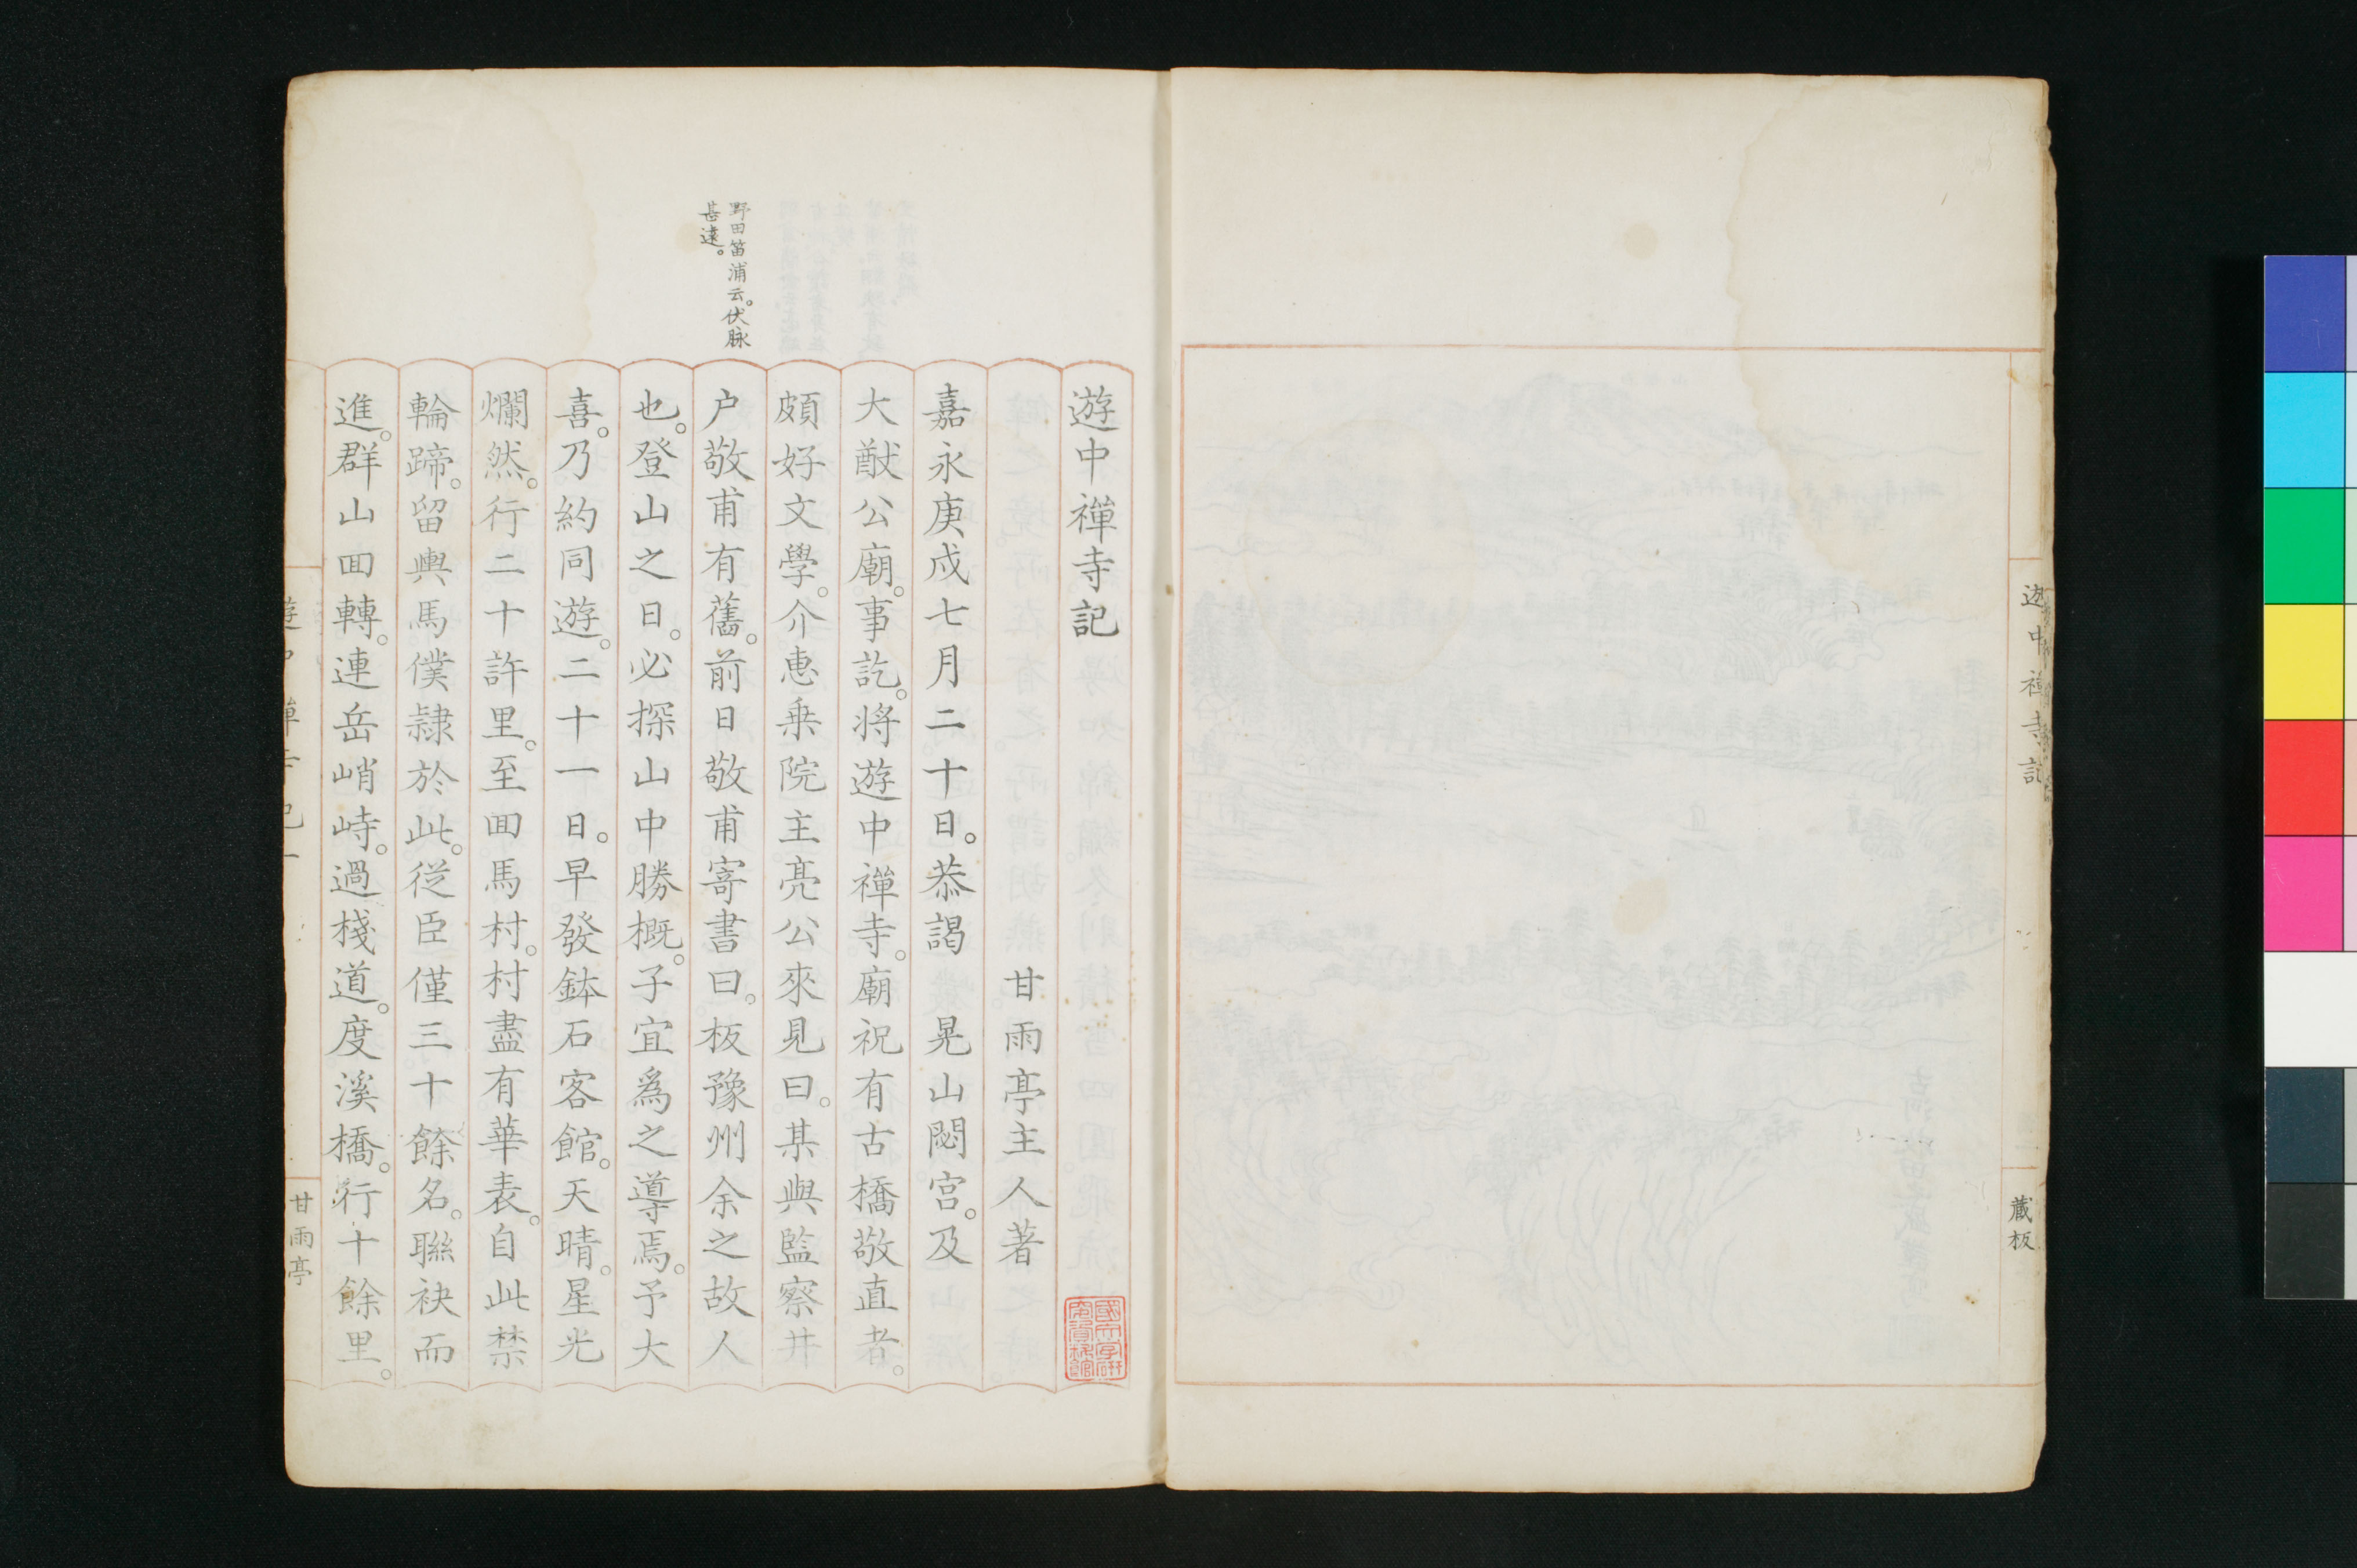 遊中禪寺記
藏板
野田笛浦云。伏脉
甚遠。
遊中禪寺記
甘雨亭主人著
嘉永庚戌七月二十日。恭謁　晃山閟宮。及
大猷公廟。事訖。將遊中禪寺。廟祝有古橋敬直者。
頗好文學。介惠乗院主亮公來見曰。某與監察井
户敬甫有舊。前日敬甫寄書曰。板豫州余之故人
也。登山之日。必探山中勝概。子宜爲之導焉。予大
喜。乃約同遊。二十一日。早發鉢石客館。天晴。星光
爛然。行二十許里。至囬馬村。村盡有華表。自此禁
輪蹄。留輿馬僕隷於此。從臣僅三十餘名。聯袂而
進。群山囬轉。連岳峭峙。過棧道。度溪橋。行十餘里。
甘雨亭
國文学研
究資料館